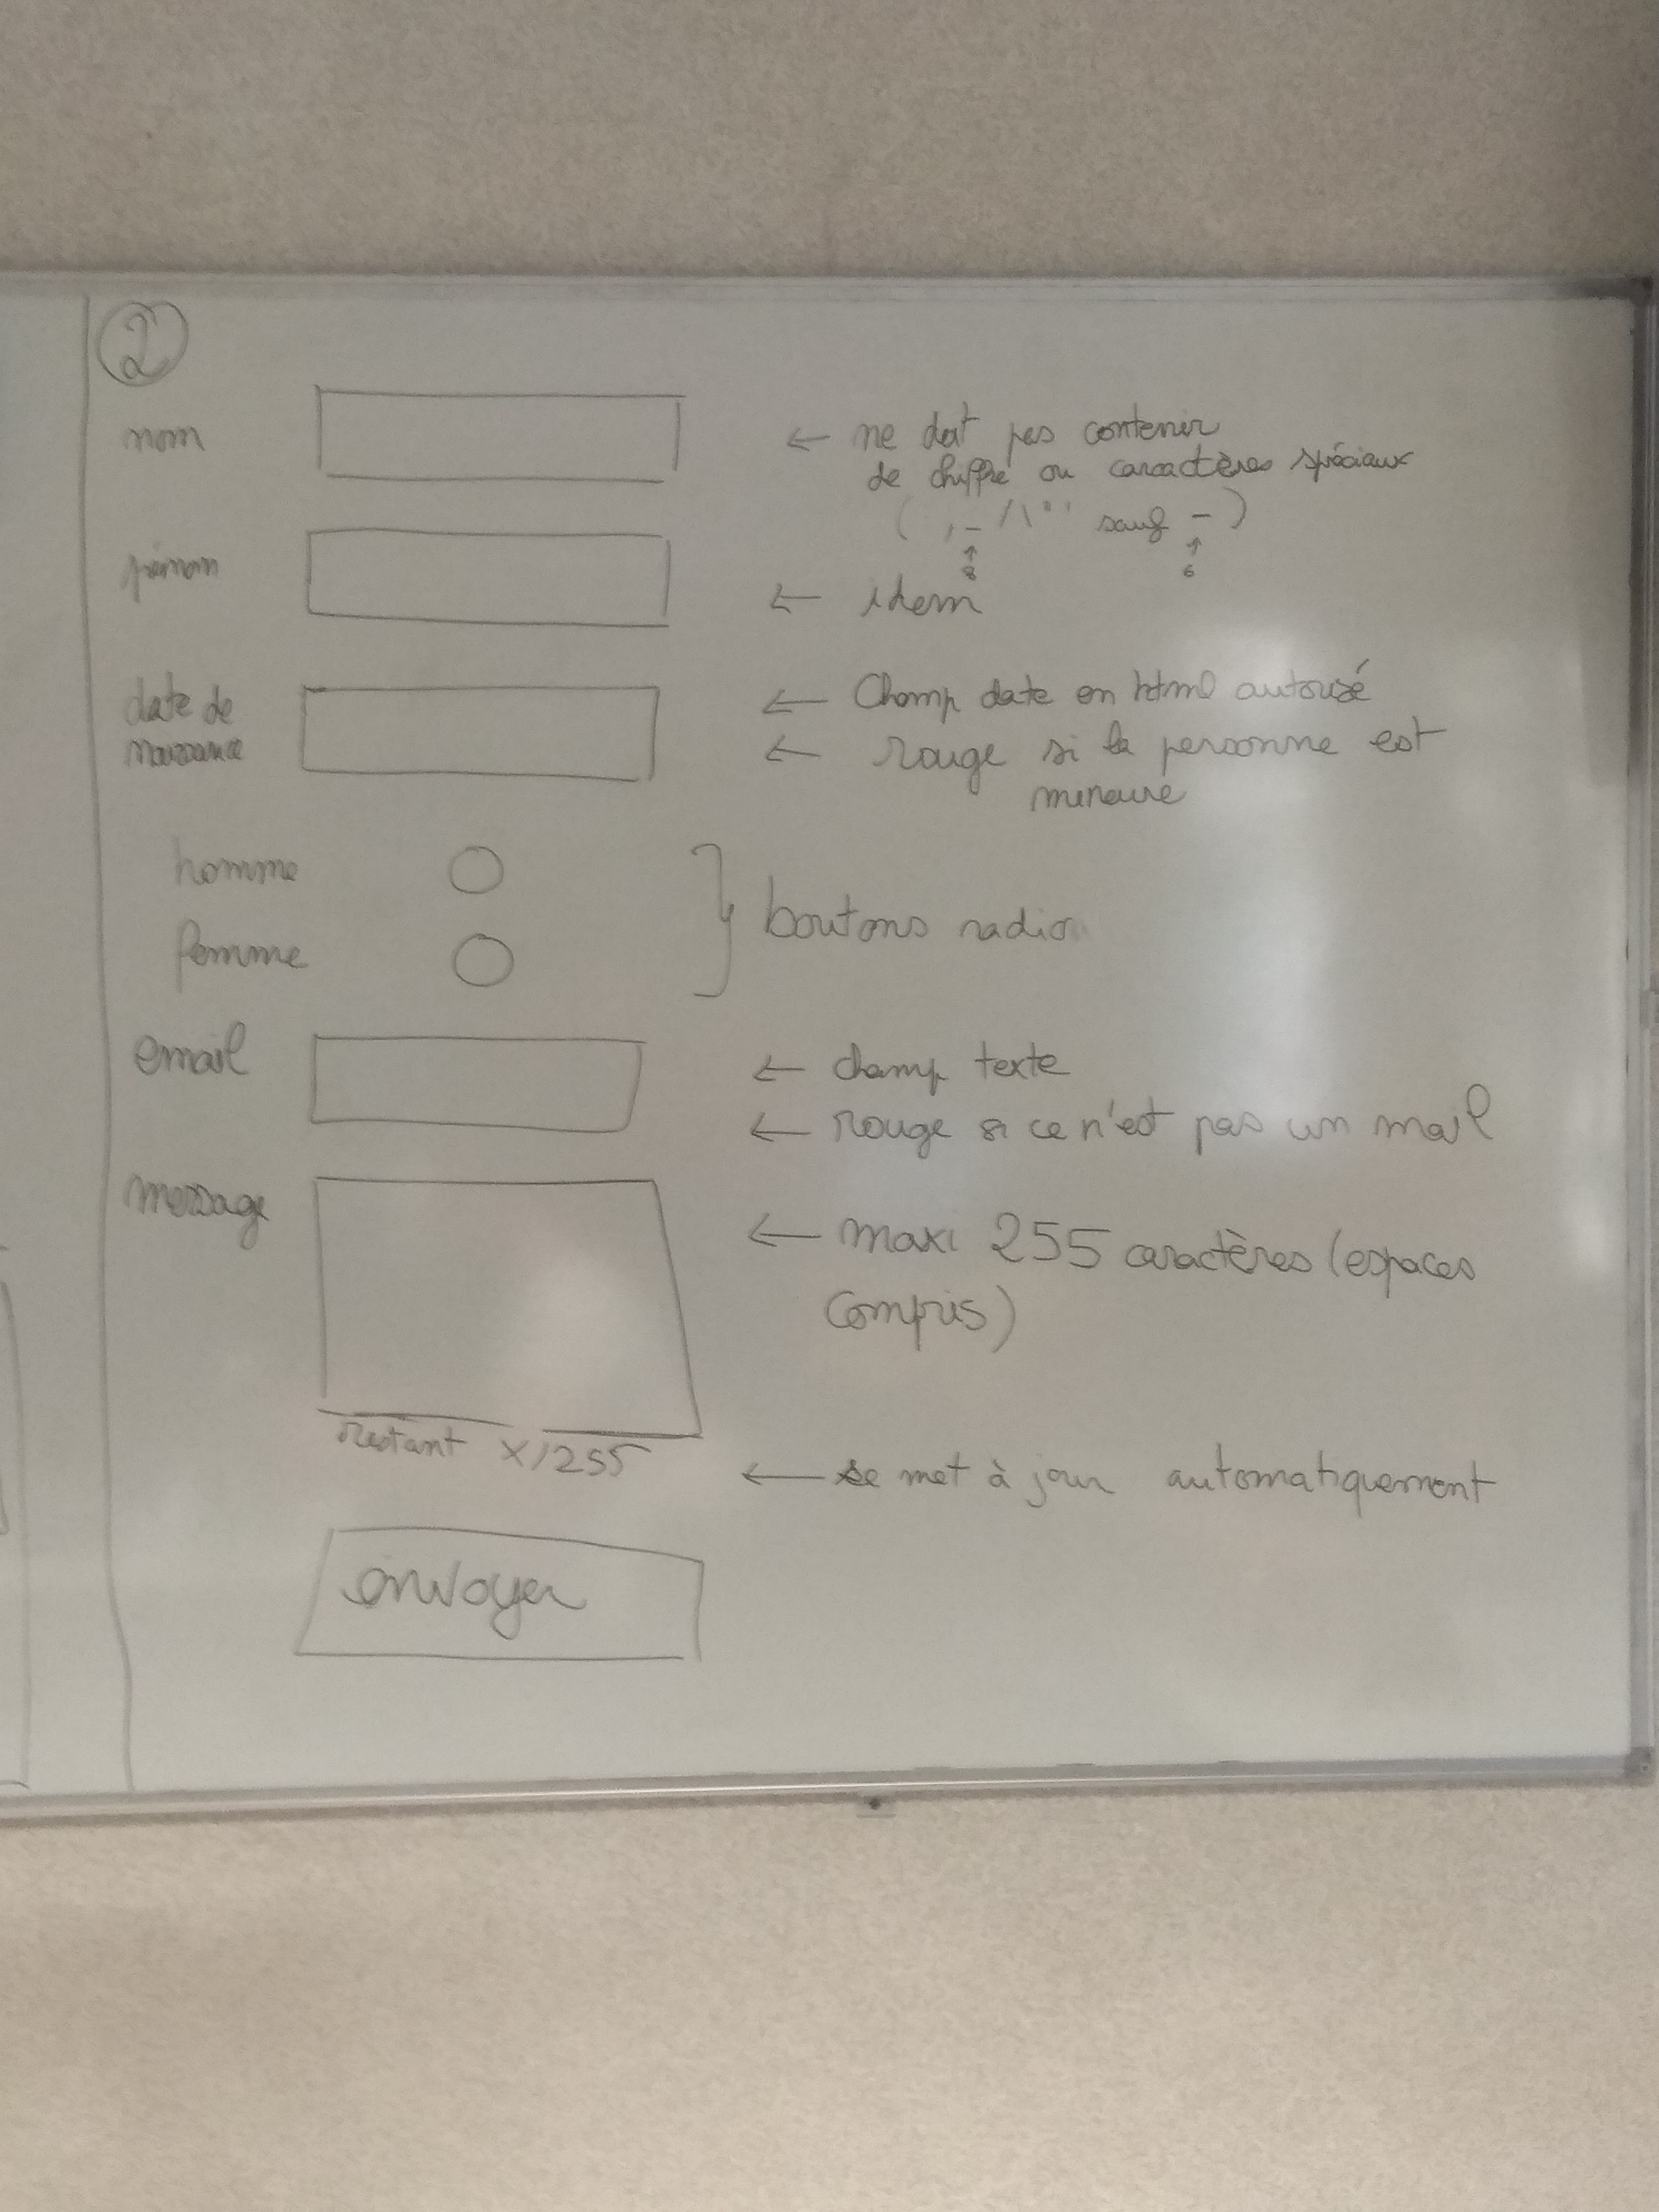 2
nom
← ne doit pas contenir
de chiffre ou caractères spéciaux
( , _ / \ " ' sauf - )
↑ ↑
8 6
prénom
← idem
date de
naissance
← Champ date en html autorisé
← rouge si la personne est
mineure
homme
femme
} boutons radio
email
← champ texte
← rouge si ce n'est pas un mail
message
← maxi 255 caractères (espaces
compris)
restant x/255
← se met à jour automatiquement
envoyer